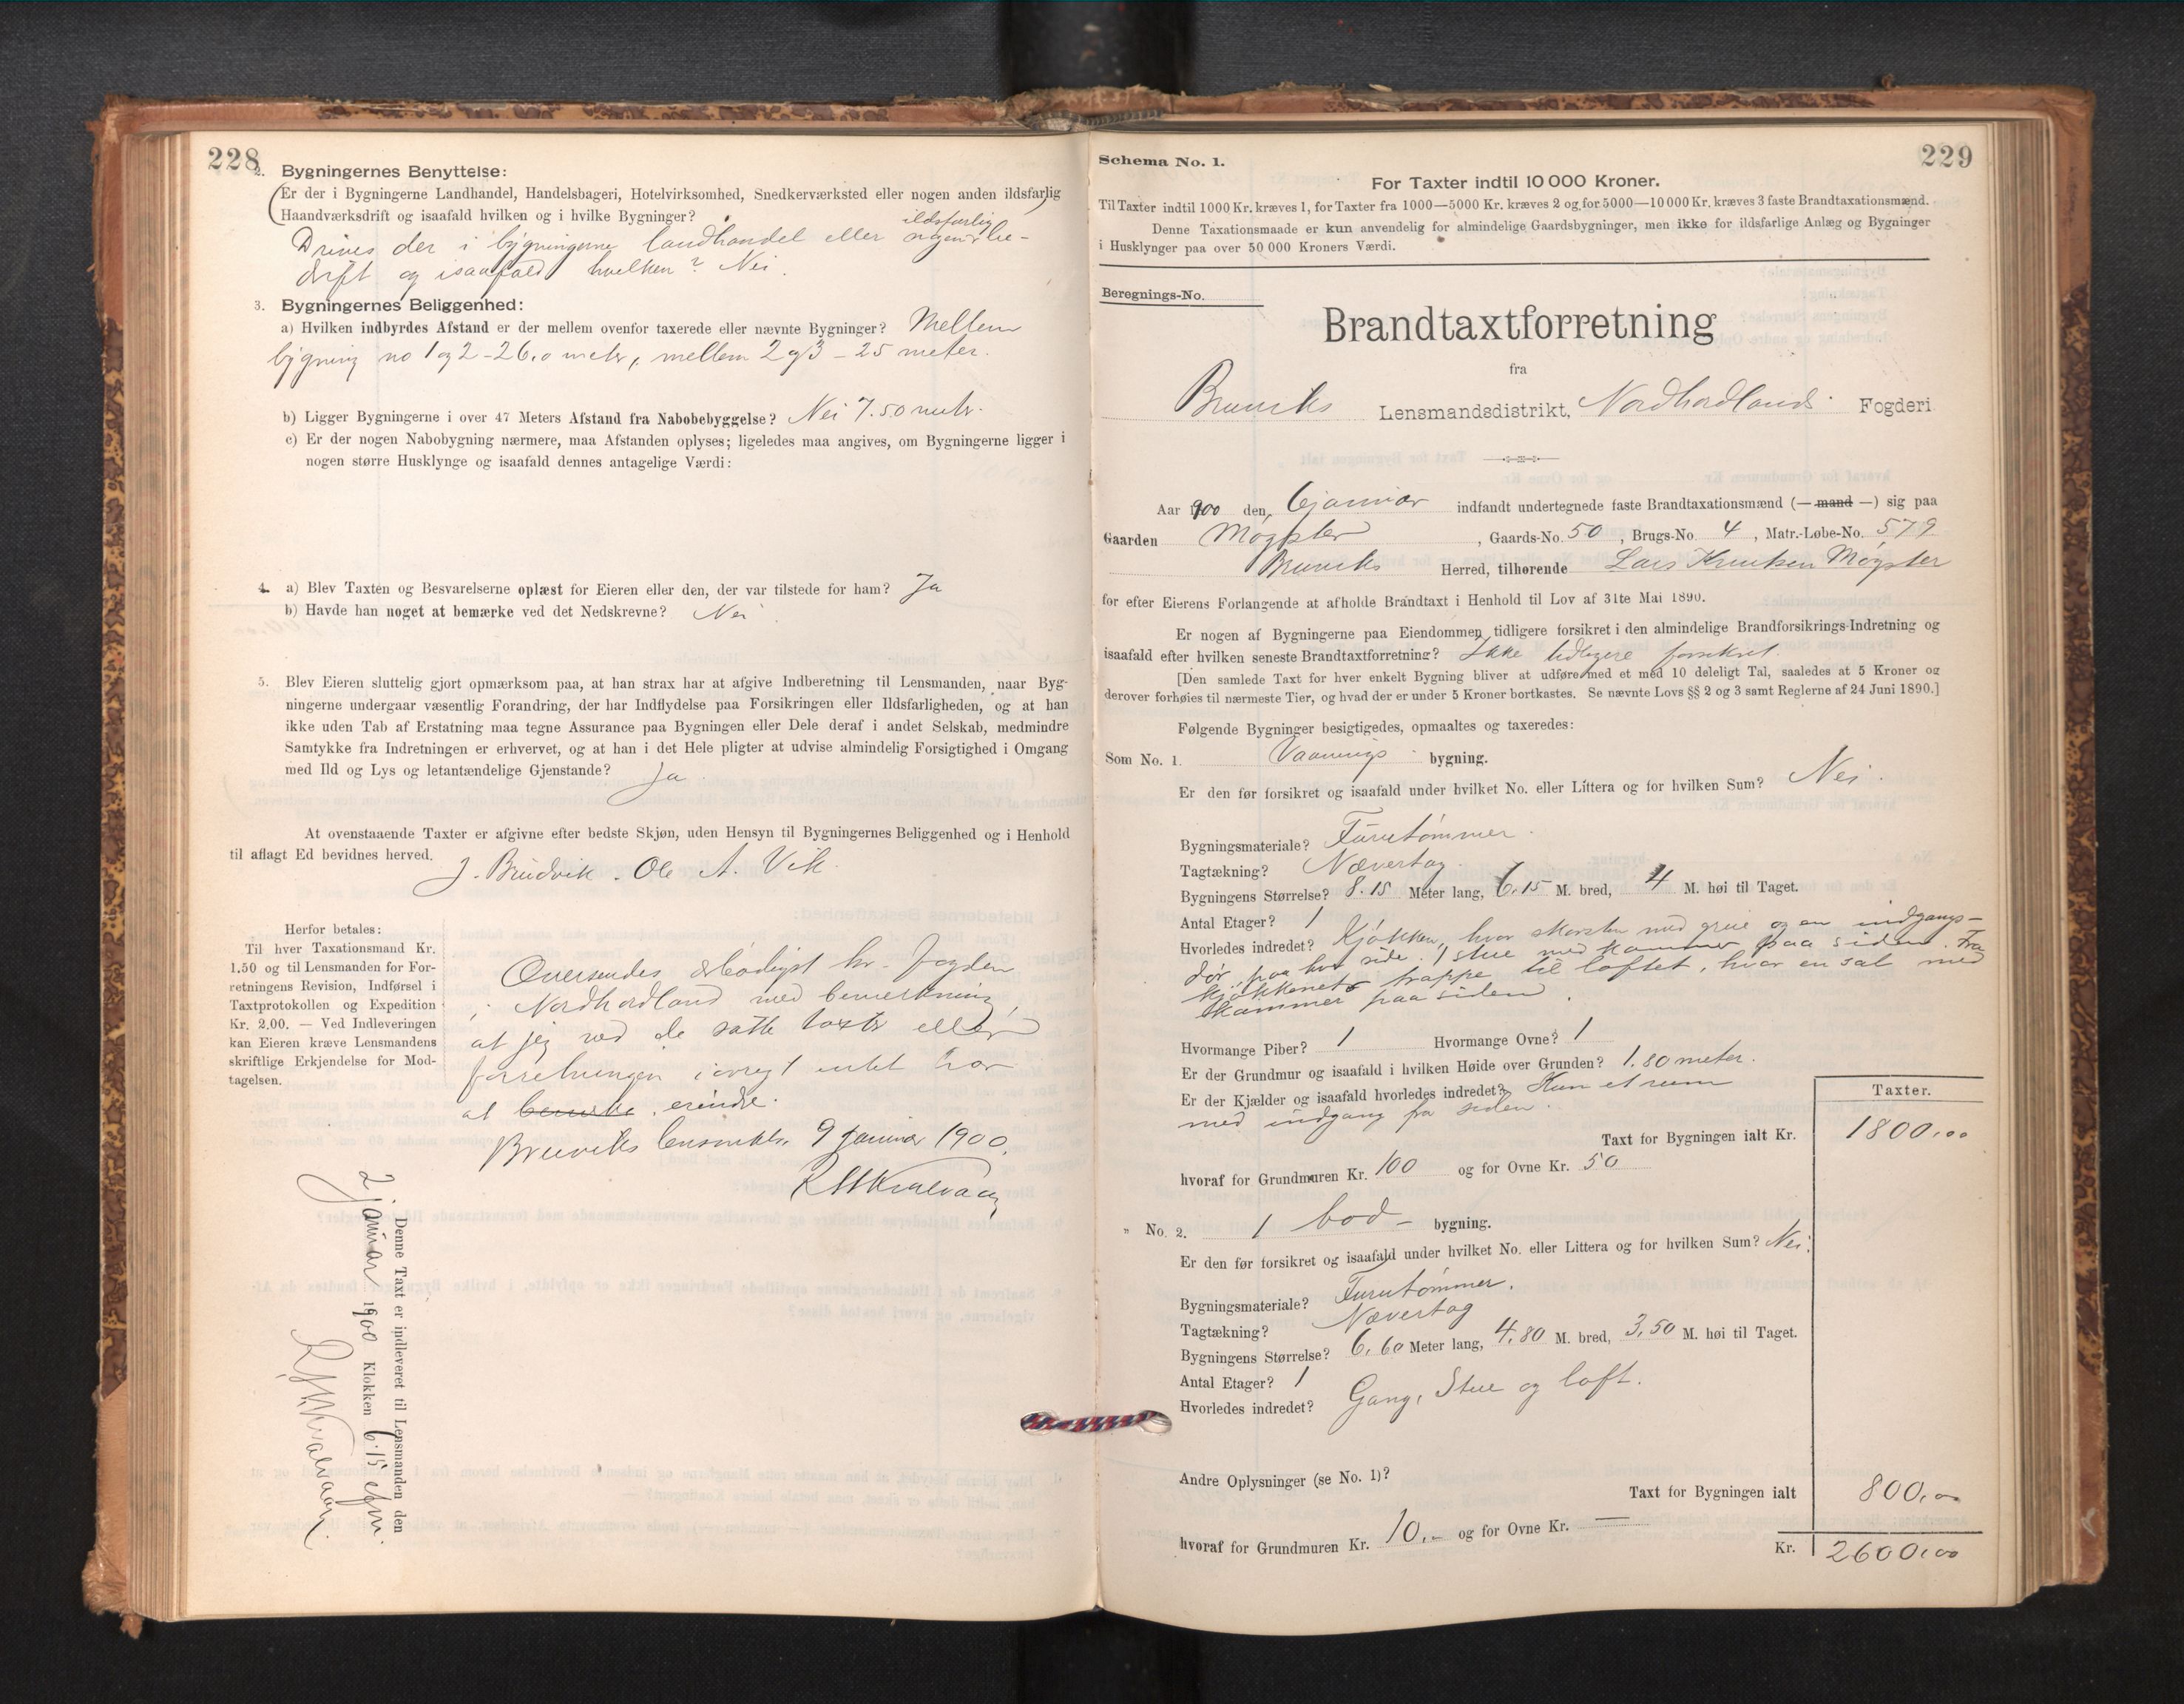 228
2. Bygningernes Benyttelse:
(Er der i Bygningerne Landhandel, Handelsbageri, Hotelvirksomhed, Snedkerværksted eller nogen anden ildsfarlig
Haandværksdrift og isaafald hvilken og i hvilke Bygninger?)
ildsfarlig
Drives der i bygningerne landhandel eller nogen be-
drift og isaafald hvilken? Nei.
3. Bygningernes Beliggenhed:
a) Hvilken indbyrdes Afstand er der mellem ovenfor taxerede eller nævnte Bygninger? Mellem
bygning no 1 og 2 - 26,0 metr, mellem 2 og 3 - 25 meter.
b) Ligger Bygningerne i over 47 Meters Afstand fra Nabobebyggelse? Nei 7.50 metr.
c) Er der nogen Nabobygning nærmere, maa Afstanden oplyses; ligeledes maa angives, om Bygningerne ligger i
nogen større Husklynge og isaafald dennes antagelige Værdi:
4. a) Blev Taxten og Besvarelserne oplæst for Eieren eller den, der var tilstede for ham? Ja
b) Havde han noget at bemærke ved det Nedskrevne? Nei
5. Blev Eieren sluttelig gjort opmærksom paa, at han strax har at afgive Indberetning til Lensmanden, naar Byg-
ningerne undergaar væsentlig Forandring, der har Indflydelse paa Forsikringen eller Ildsfarligheden, og at han
ikke uden Tab af Erstatning maa tegne Assurance paa Bygningen eller Dele deraf i andet Selskab, medmindre
Samtykke fra Indretningen er erhvervet, og at han i det Hele pligter at udvise almindelig Forsigtighed i Omgang
med Ild og Lys og letantændelige Gjenstande? Ja
At ovenstaaende Taxter er afgivne efter bedste Skjøn, uden Hensyn til Bygningernes Beliggenhed og i Henhold
til aflagt Ed bevidnes herved.
J. Brudvik. Ole A. Vik.
Herfor betales:
Til hver Taxationsmand Kr.
1.50 og til Lensmanden for For-
retningens Revision, Indførsel i
Taxtprotokollen og Expedition
Kr. 2.00. — Ved Indleveringen
kan Eieren kræve Lensmandens
skriftlige Erkjendelse for Mod-
tagelsen.
Oversendes ærbødigst hr. fogden
i Nordhordland med bemerkning,
at jeg ved de satte taxter eller
forretningen iøvrigt intet har
at bemerke erindre.
Bruviks lensmktr. 9 januar 1900.
Denne Taxt er indleveret til Lensmanden den
2 januar 1900 Klokken 6.15 efm.
229
Schema No. 1.
For Taxter indtil 10 000 Kroner.
Til Taxter indtil 1000 Kr. kræves 1, for Taxter fra 1000—5000 Kr. kræves 2 og for 5000—10 000 Kr. kræves 3 faste Brandtaxationsmænd.
Denne Taxationsmaade er kun anvendelig for almindelige Gaardsbygninger, men ikke for ildsfarlige Anlæg og Bygninger
i Husklynger paa over 50 000 Kroners Værdi.
Beregnings-No.
Brandtaxtforretning
fra
Bruviks Lensmandsdistrikt, Nordhordlands Fogderi
Aar 1900 den 6 januar indfandt undertegnede faste Brandtaxationsmænd (— mand —) sig paa
Gaarden Møgster, Gaards-No. 50, Brugs-No. 4, Matr.-Løbe-No. 579
Bruviks Herred, tilhørende Lars Knutsen Møgster
for efter Eierens Forlangende at afholde Brandtaxt i Henhold til Lov af 31te Mai 1890.
Er nogen af Bygningerne paa Eiendommen tidligere forsikret i den almindelige Brandforsikrings-Indretning og
isaafald efter hvilken seneste Brandtaxtforretning? Ikke tidligere forsikret.
[Den samlede Taxt for hver enkelt Bygning bliver at udføre med et med 10 deleligt Tal, saaledes at 5 Kroner og
derover forhøies til nærmeste Tier, og hvad der er under 5 Kroner bortkastes. Se nævnte Lovs §§ 2 og 3 samt Reglerne af 24 Juni 1890.]
Følgende Bygninger besigtigedes, opmaaltes og taxeredes:
Som No. 1. Vaanings bygning.
Er den før forsikret og isaafald under hvilket No. eller Littera og for hvilken Sum? Nei.
Bygningsmateriale? Furutømmer.
Tagtækning? Nævertag.
Bygningens Størrelse? 8.15 Meter lang, 6.15 M. bred, 4 M. høi til Taget.
Antal Etager? 1
Hvorledes indredet? Kjøkken, hvor skorsten med grue og en indgangs-
dør paa hver side. 1 stue med kammer paa siden. Fra
kjøkkenet trappe til loftet, hvor en sal med
kammer paa siden.
Hvormange Piber? 1 Hvormange Ovne? 1
Er der Grundmur og isaafald i hvilken Høide over Grunden? 1.80 meter.
Er der Kjælder og isaafald hvorledes indredet? Kun et rum
med indgang fra siden.
Taxter.
Taxt for Bygningen ialt Kr. 1800,00
hvoraf for Grundmuren Kr. 100 og for Ovne Kr. 50
" No. 2. 1 bod- bygning.
Er den før forsikret og isaafald under hvilket No. eller Littera og for hvilken Sum? Nei.
Bygningsmateriale? Furutømmer.
Tagtækning? Nævertag
Bygningens Størrelse? 6,60 Meter lang, 4,80 M. bred, 3,50 M. høi til Taget.
Antal Etager? 1
Hvorledes indredet? Gang, Stue og loft.
Andre Oplysninger (se No. 1)?
Taxt for Bygningen ialt 800,00
hvoraf for Grundmuren Kr. 10,- og for Ovne Kr. —
Kr. 2600,00